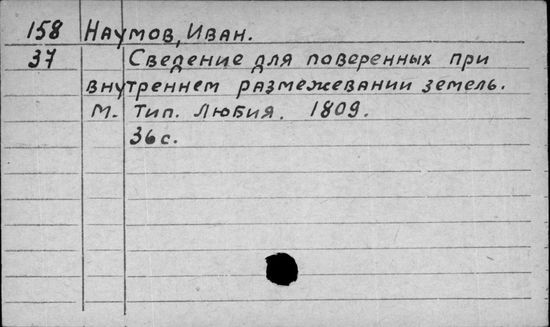 158 Наумов, Иван.
37 Сведение для поверенных при
внутреннем размежевании земель.
М. Тип. Любия. 1809.
36 с.